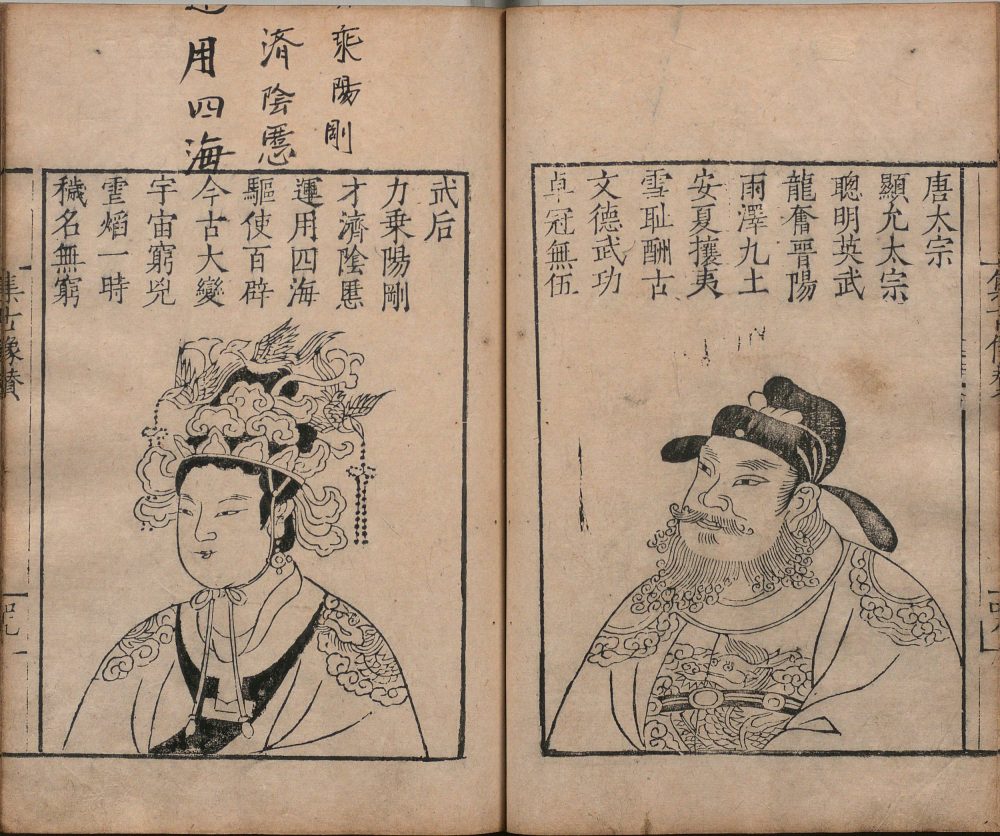 唐太宗
顯允太宗
聰明英武
龍奮晋陽
雨澤九土
安夏攘夷
雪耻酬古
文德武功
卓冠無伍
乘陽剛
濟陰慝
用四海
武后
力乗陽剛
才濟陰慝
運用四海
驅使百辟
今古大變
宇宙窮兇
熖一時
穢名無窮
集古像贊